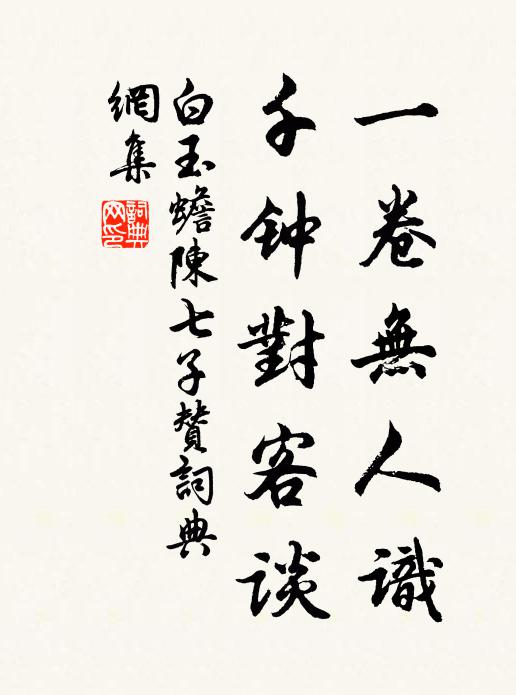 一卷無人識
千钟對客談
白玉蟾陳七子贊詞典
網集
詞典网印